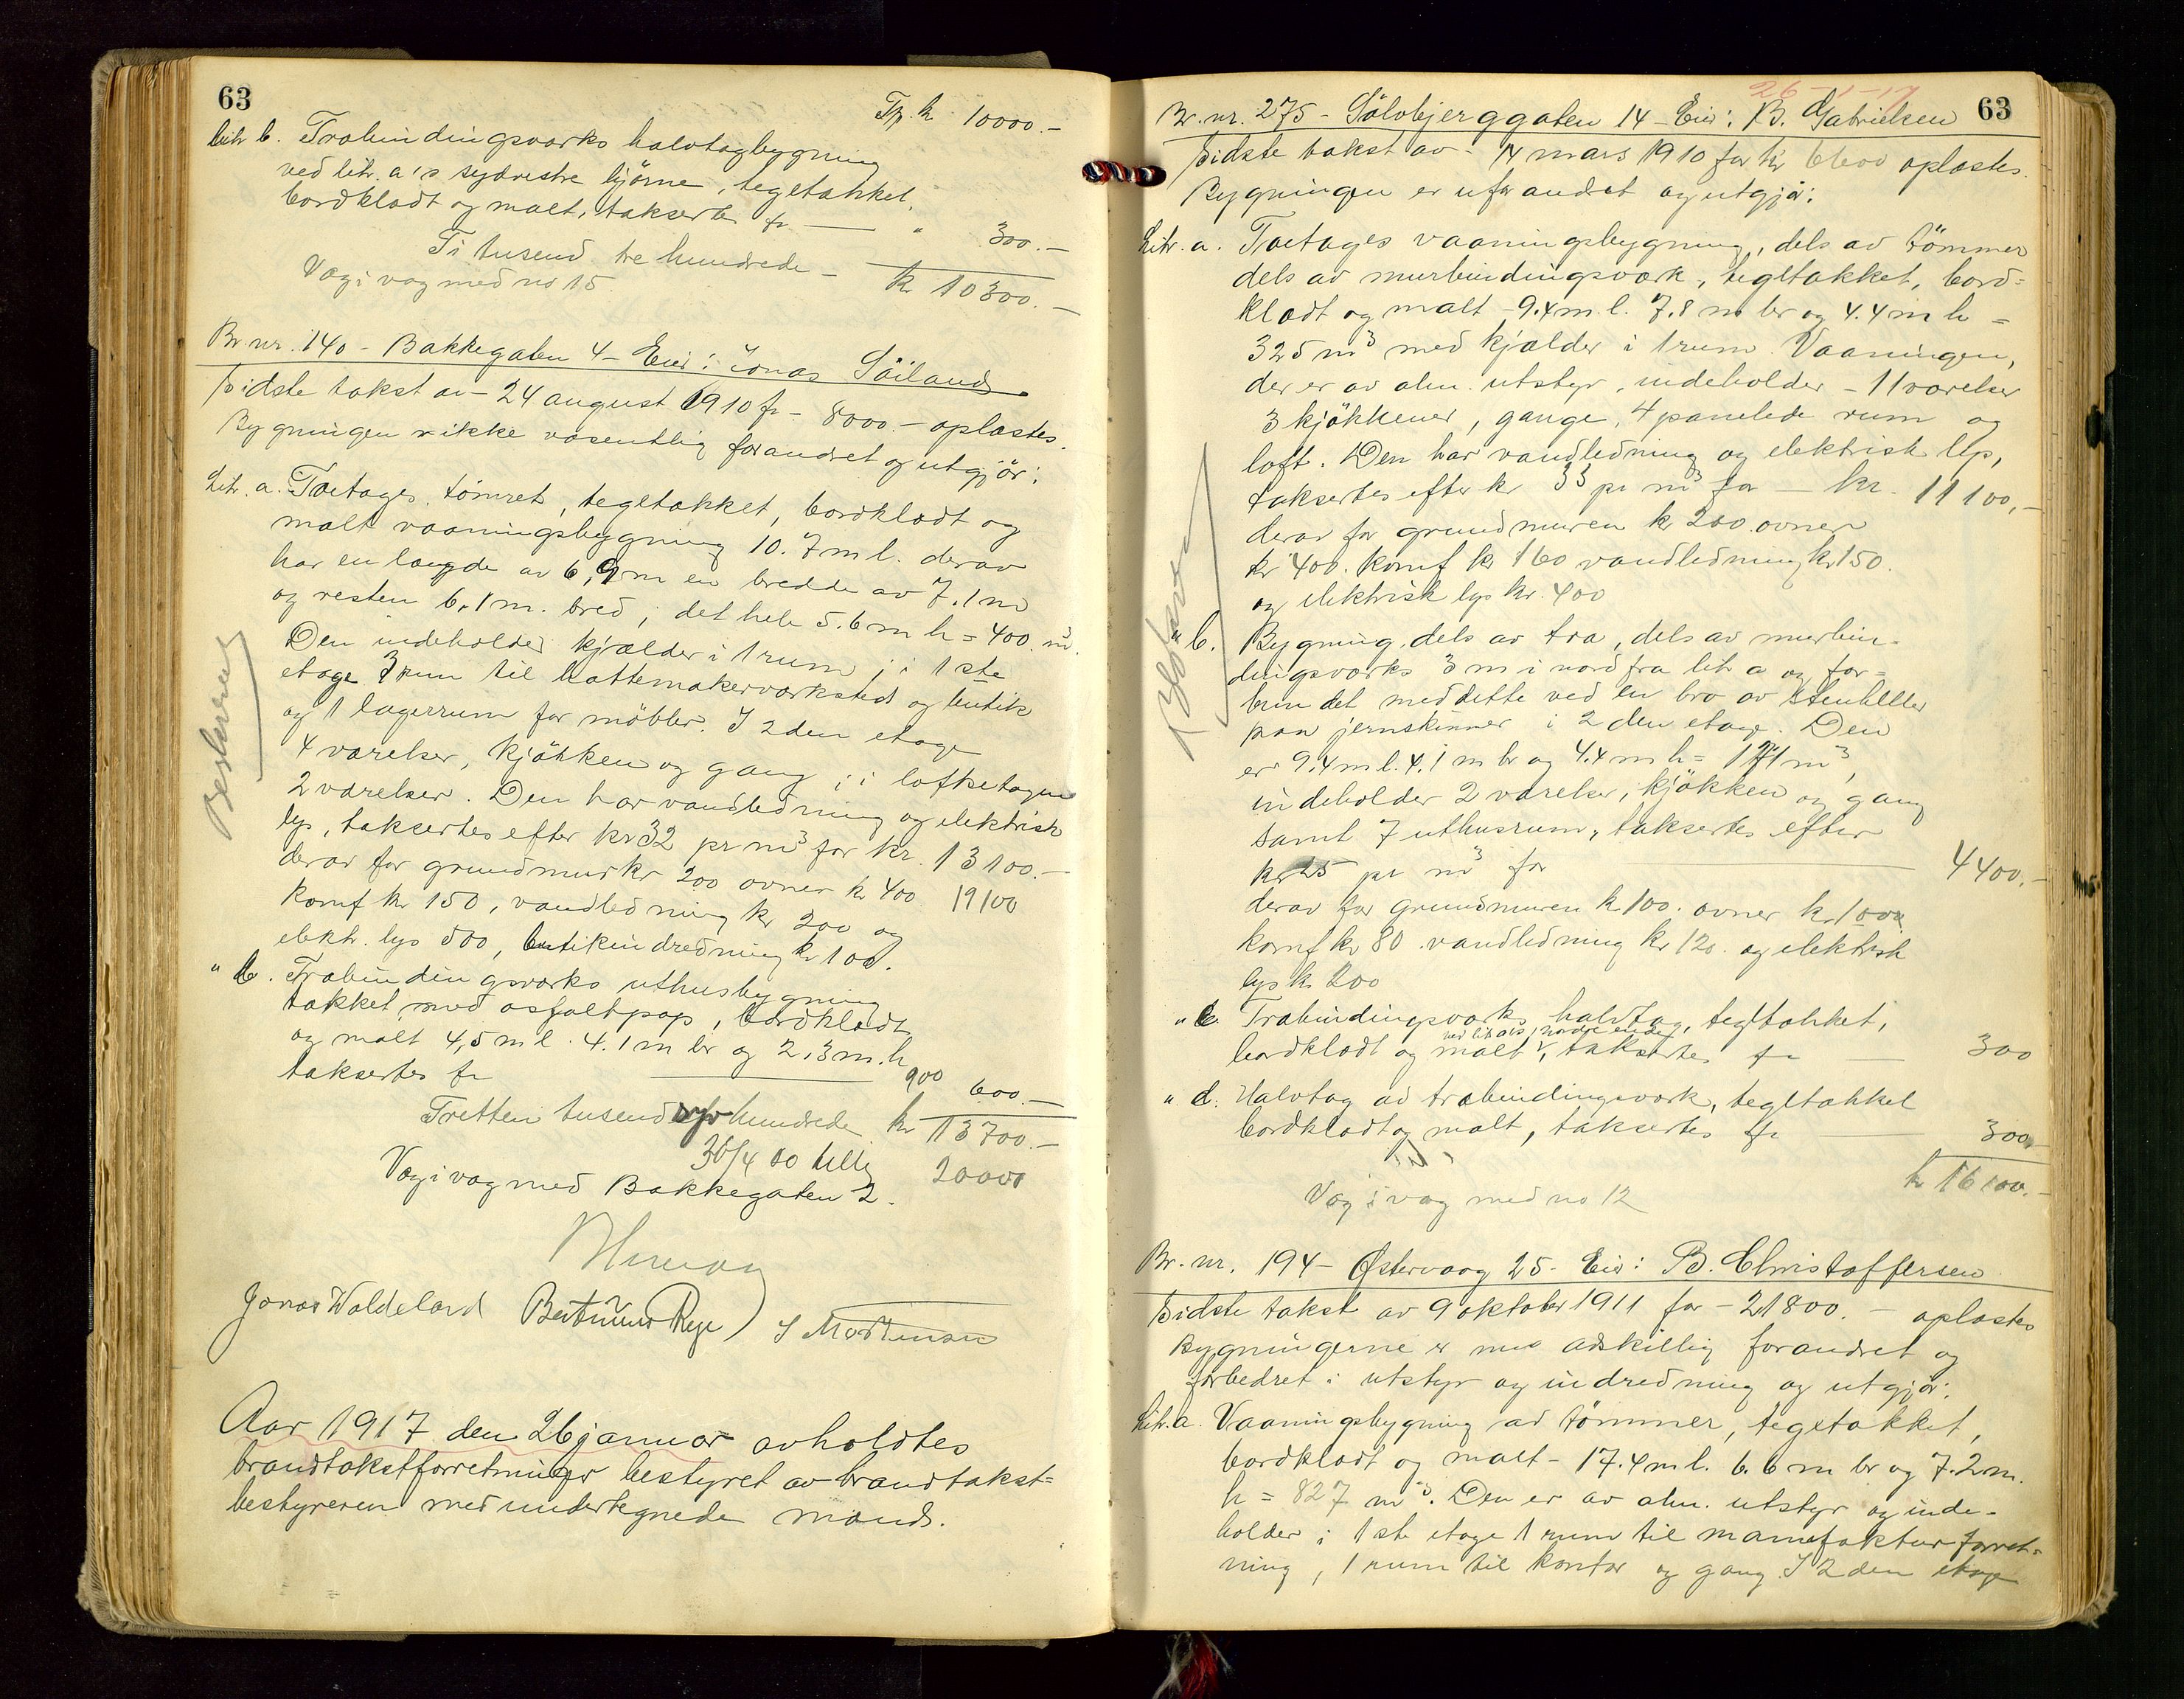 63
Tp. kr 10000.-
Litr b. Træbindingsværks halvtagbygning
ved litr. a's sydvestre hjørne, tegltækket,
bordklædt og malt, takseres fr — " 300.-
Ti tusend tre hundrede - kr 10300.-
Væg i væg med no 15
Br. nr. 140 - Bakkegaten 4 - Eier: Jonas Söiland
Sidste takst av - 24 august 1910 fr - 8000.- oplæstes.
Bygningen er ikke væsentlig forandret og utgjör:
Litr. a. Toetages tömret, tegltækket, bordklædt og
malt vaaningsbygning 10.7 m l. derav
har en længde av 6,9 m en bredde av 7.1 m
og resten 6,1 m. bred, det hele 5.6 m h = 400. m³.
Den indeholder kjælder i 1 rum ; i 1ste
etage 3 rum til hattemakerværksted og butik
og 1 lagerrum for möbler. I 2den etage
4 værelser, kjökken og gang ; i loftsetagen
2 værelser. Den har vandledning og elektrisk
lys, taksertes efter kr 32 pr m³ for kr. 13100.-
derav for grundmur kr 200 ovner kr 400 19100
komf kr 150, vandledning kr 200 og
elektr. lys 500, butikindredning kr 100.
" b. Træbindingsværks uthusbygning
tækket med asfaltpap, bordklædt
og malt 4,5 m l. 4.1 m br og 2.3 m. h
taksertes fr 900 600.-
Tretten tusend syv hundrede kr 13700.-
30/4 20000
Væg i væg med Bakkegaten 2.
Jonas Waldeland S Mortensen
Aar 1917 den 26 januar avholdtes
brandtakstforretninger bestyret av brandtakst=
bestyreren med undertegnede mænd.
26-1-17
63
Br. nr. 275 - Sölvbjerggaten 14 - Eier: B. Gabrielsen
Sidste takst av - 14 mars 1910 for kr 6600 oplæstes.
Bygningen er uforandret og utgjör:
Litr. a. Toetages vaaningsbygning, dels av tömmer
dels av murbindingsværk, tegltækket, bord=
klædt og malt - 9.4 m l. 7.8 m br og 4.4 m h =
325 m³ med kjælder i 1 rum. Vaaningen,
der er av alm. utstyr, indeholder - 11 værelser
3 kjökkener, gange, 4 panelede rum og
loft. Den har vandledning og elektrisk lys,
taksertes efter kr 33 pr m³ for — kr. 11100,-
derav for grundmuren kr 200 ovner
kr 400. komf kr 160 vandledning kr 150.
og elektrisk lys kr. 400
" b. Bygning, dels av træ, dels av murbin-
dingsværks 3 m i nord fra litr a og for=
bundet med dette ved en bro av stenheller
paa jernskinner i 2den etage. Den
er 9.4 m l. 4.1 m br og 4.4 m h = 171 m³,
indeholder 2 værelser, kjökken og gang
samt 7 uthusrum, taksertes efter
kr 25 pr m³ for 4400.-
derav for grundmuren kr 100. ovner kr. 100
komf kr 80 vandledning kr 120. og elektrisk
lys kr 200
" c. Træbindingsværks halvtag, tegltækket,
ved litr a's nordre ende
bordklædt og malt, taksertes fr — 300
" d. Halvtag av træbindingsværk, tegltækket
bordklædt og malt, taksertes fr — 300
kr 16100.-
Væg i væg med no 12
Br. nr. 194 - Østervaag 25 - Eier: B. Christoffersen
Sidste takst av 9 oktober 1911 for - 21800. - oplæstes
Bygningerne er nu adskillig forandret og
forbedret i utstyr og indredning og utgjör:
Litr. a. Vaaningsbygning av tömmer, tegltækket,
bordklædt og malt - 17.4 m l. 6.6 m br og 7.2 m.
h = 827 m³. Den er av alm. utstyr og inde-
holder i 1ste etage 1 rum til manufakturforret=
ning, 1 rum til kontor og gang. I 2den etage